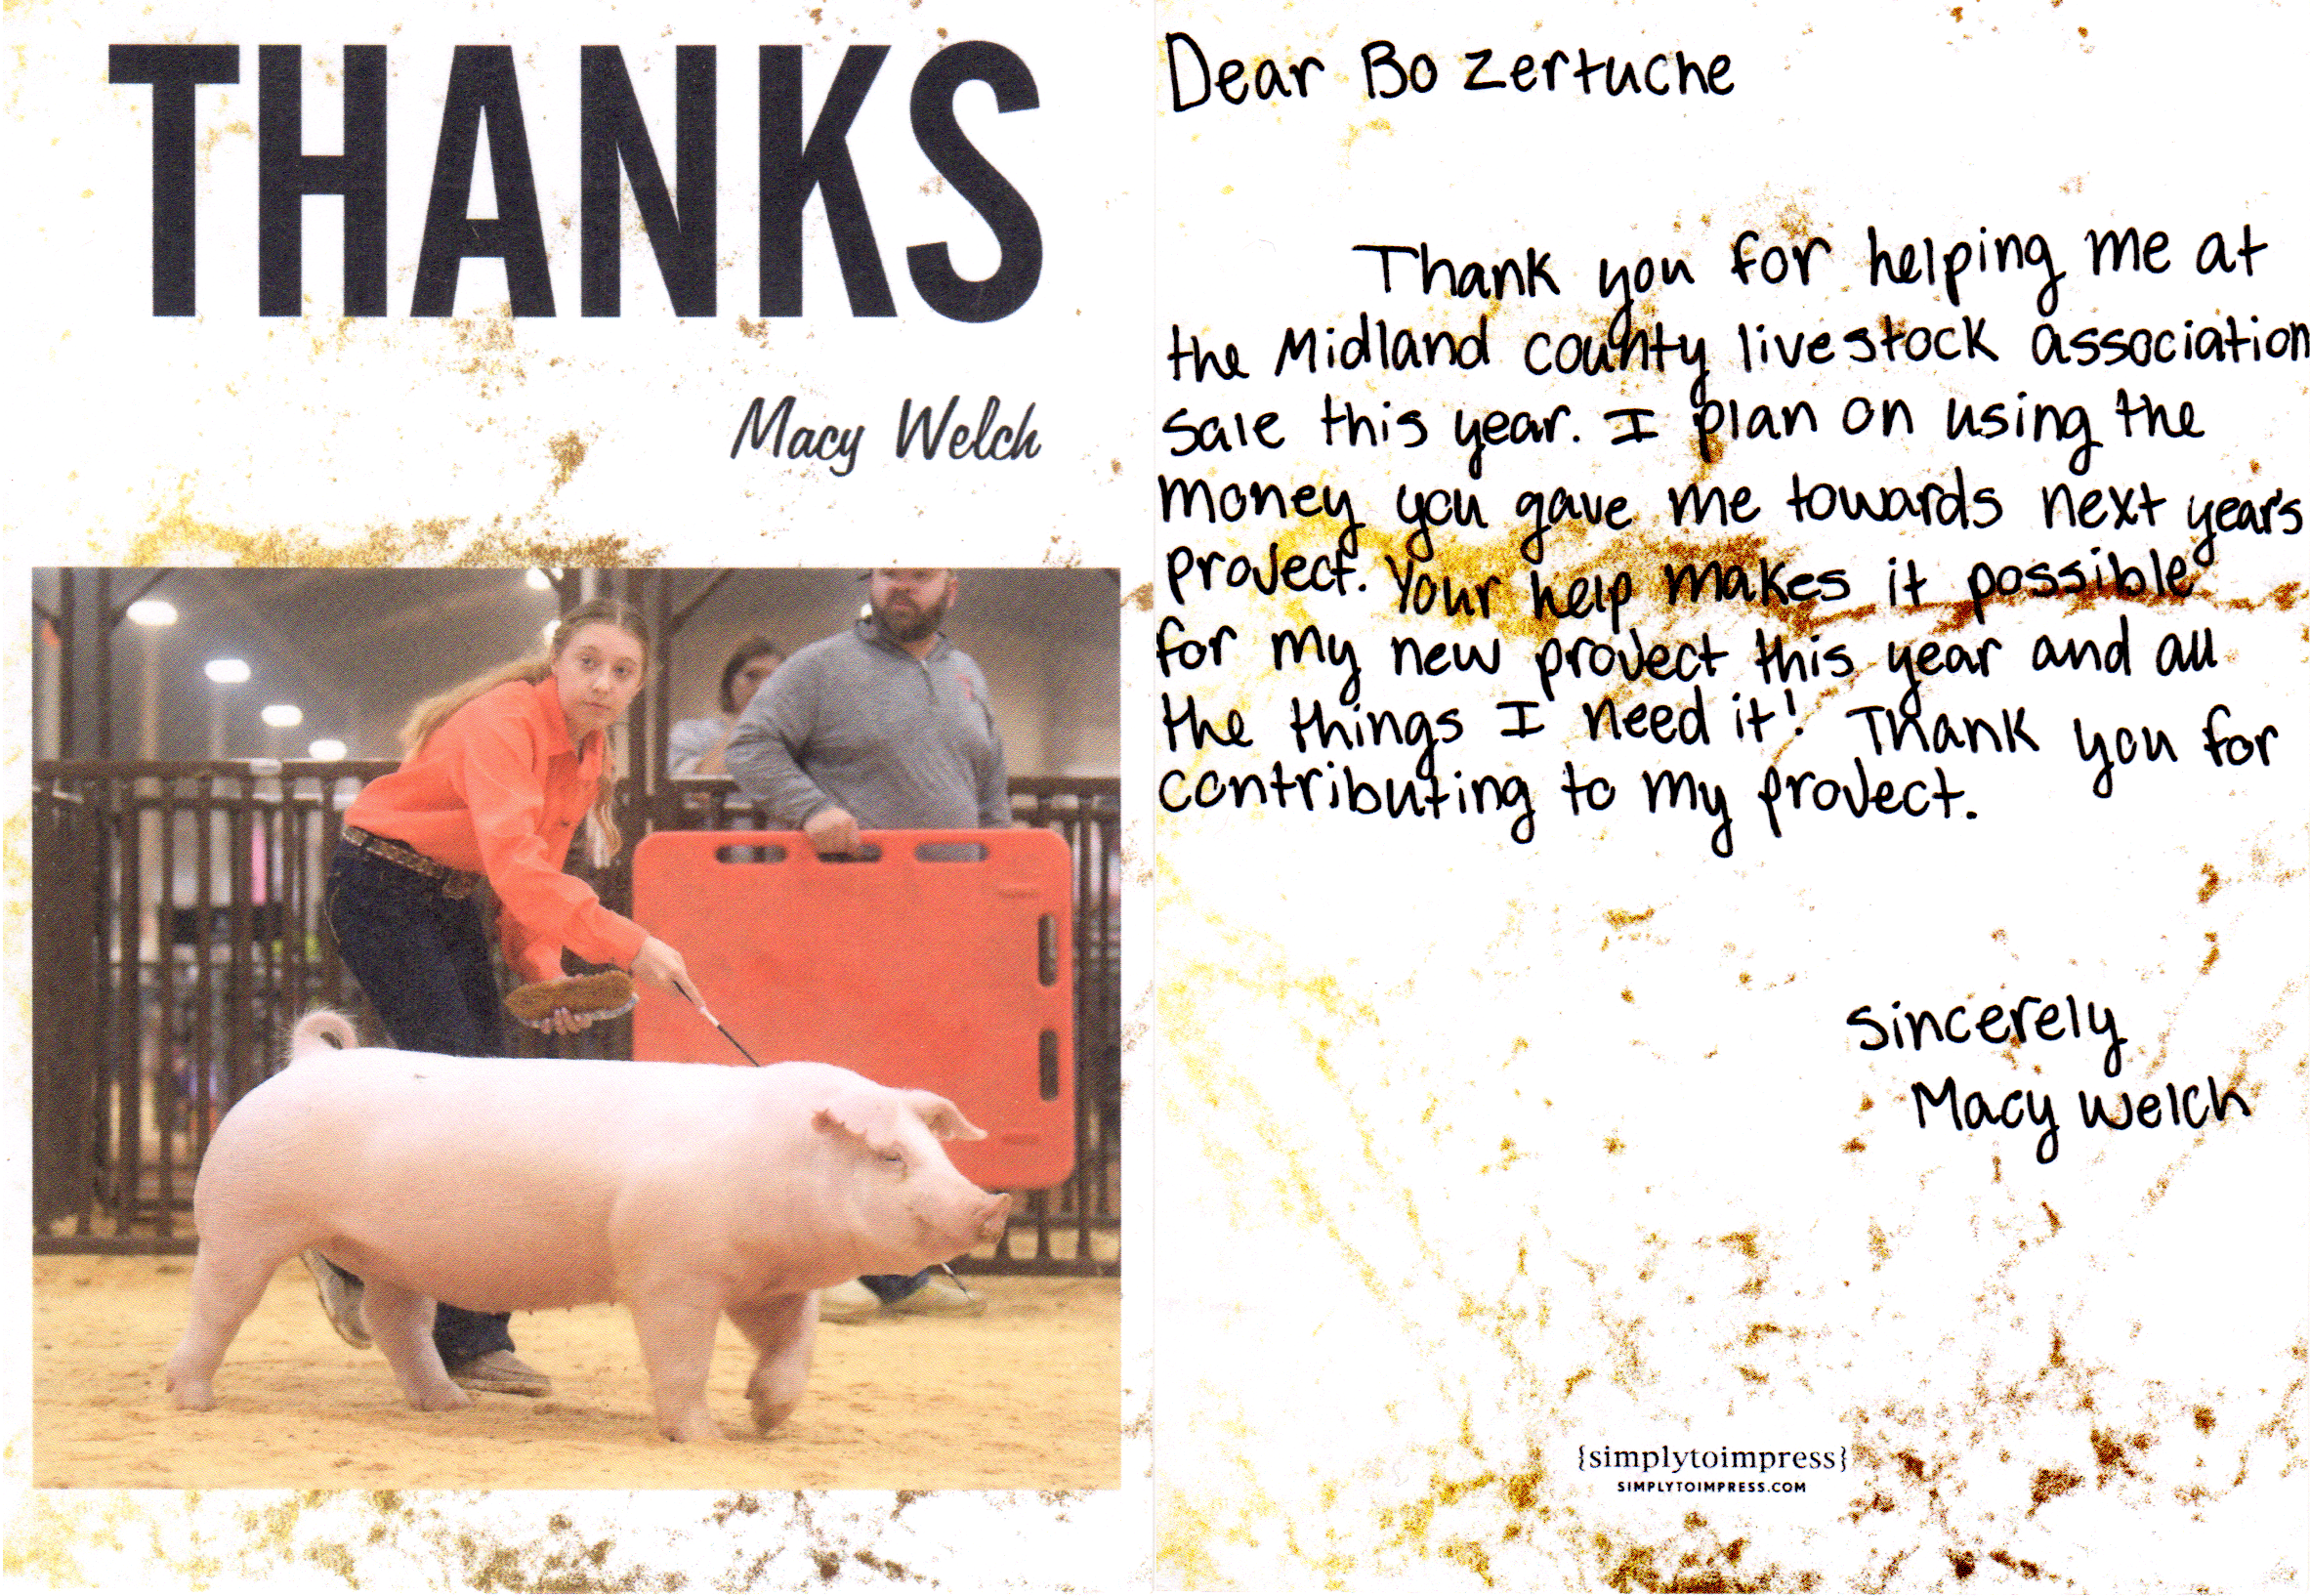 THANKS
Macy Welch
Dear Bo Zertuche
Thank you for helping me at
the Midland county livestock association
sale this year. I plan on using the
money you gave me towards next year's
project. Your help makes it possible
for my new project this year and all
the things I need it! Thank you for
contributing to my project.
Sincerely
Macy Welch
{simplytoimpress}
SIMPLYTOIMPRESS.COM